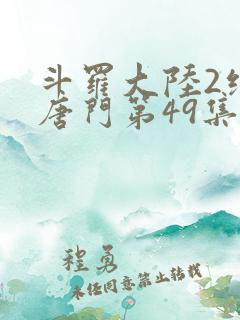 斗羅大陸2
唐門第49集
程勇
未经同意禁止转载